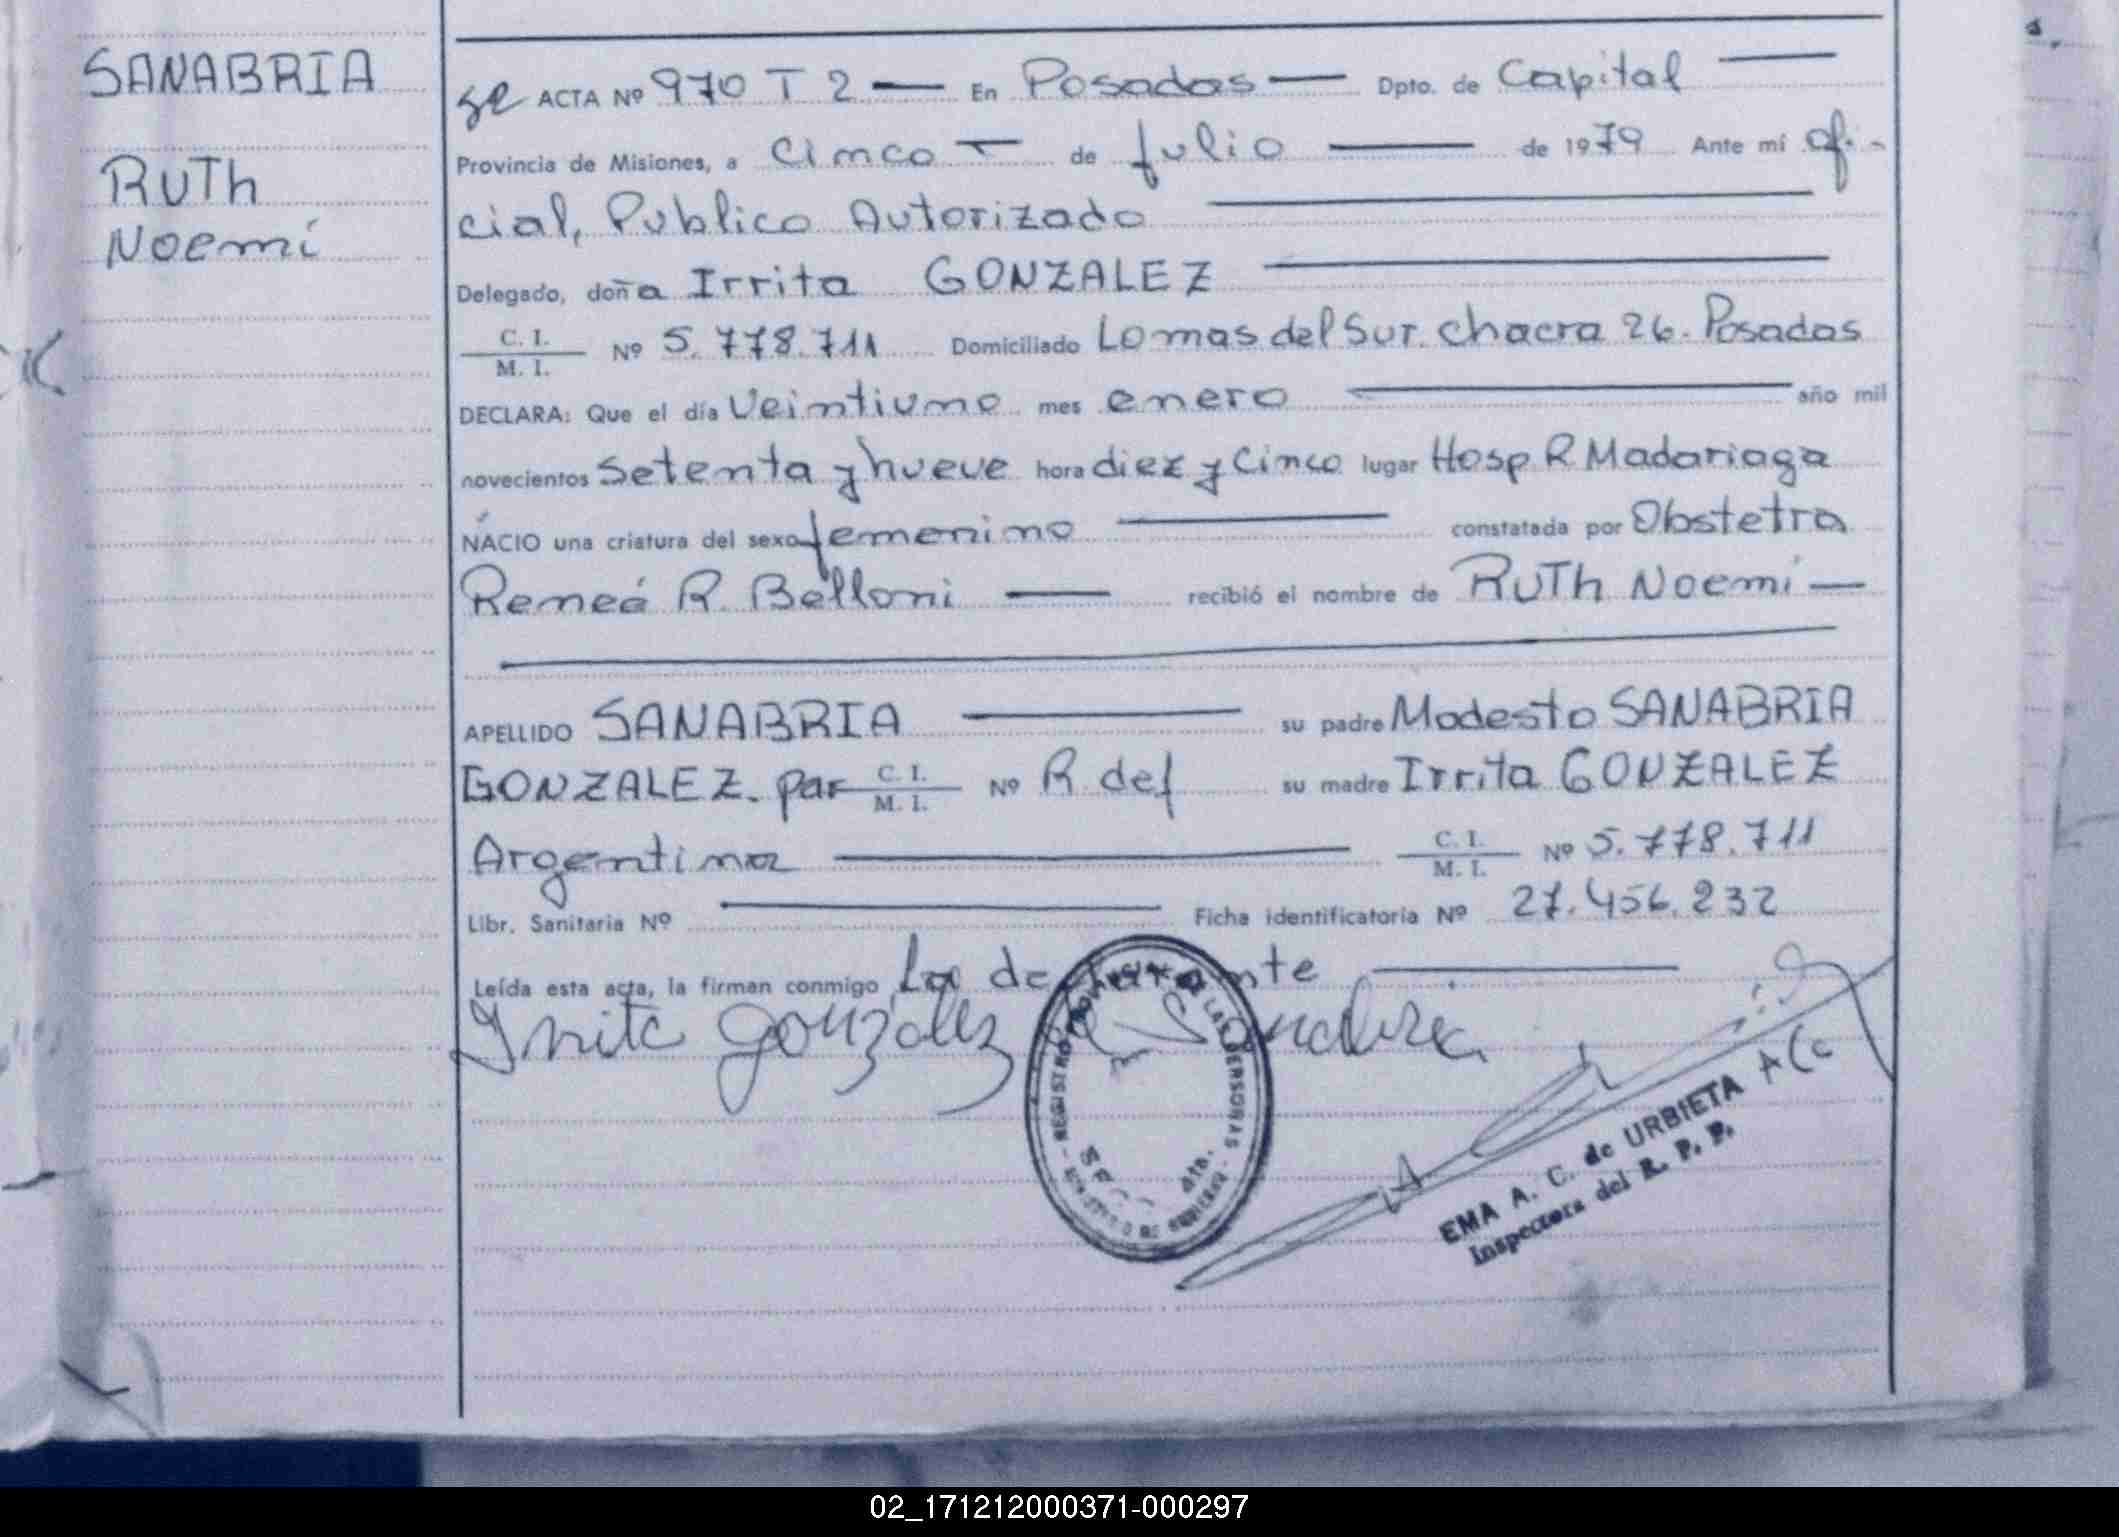 SANABRIA
RUTh
Noemí
ACTA Nº 970 T 2 — En Posadas — Dpto. de Capital —
Provincia de Misiones, a Cinco — de Julio — de 1979 Ante mí ofi-
cial, Publico Autorizado —
Delegado, doña Irrita GONZALEZ —
C. I.
M. I. Nº 5.778.711 Domiciliado Lomas del Sur. Chacra 26. Posadas
DECLARA: Que el día Veintiuno mes enero — año mil
novecientos Setenta y nueve hora diez y Cinco lugar Hosp R Madariaga
NACIO una criatura del sexo femenino — constatada por Obstetra
Reneé R. Belloni — recibió el nombre de RUTh Noemí —
APELLIDO SANABRIA — su padre Modesto SANABRIA
GONZALEZ. par C. I.
M. I. Nº R def su madre Irrita GONZALEZ
Argentina — C. I.
M. I. Nº 5.778.711
Libr. Sanitaria Nº — Ficha identificatoria Nº 27.456.232
Leída esta acta, la firman conmigo La declarante —
Irrita González de Sanabria
REGISTRO PROVINCIAL DE LAS PERSONAS
MINISTERIO DE GOBIERNO
EMA A. C. de URBIETA
Inspectora del R. P. P.
02_171212000371-000297